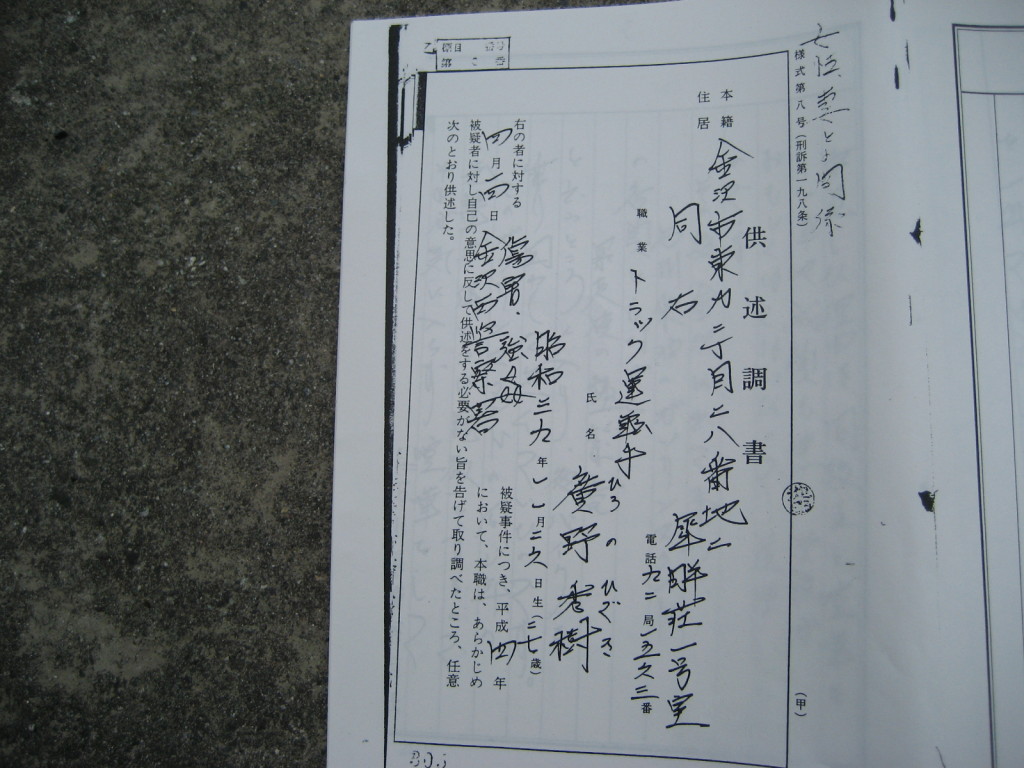 様式第八号(刑訴第一九八条)
(甲)
供述調書
本籍 金沢市東力二丁目二八番地二
犀畔荘一号室
住居 同右
電話 九二局一五六三番
職業 トラック運転手
ひろの ひでき
氏名 廣野秀樹
昭和三九年一一月二六日生(二七歳)
右の者に対する 傷害・強姦 被疑事件につき、平成四年
四月一日 金沢西警察署 において、本職は、あらかじめ
被疑者に対し自己の意思に反して供述をする必要がない旨を告げて取り調べたところ、任意
次のとおり供述した。
乙